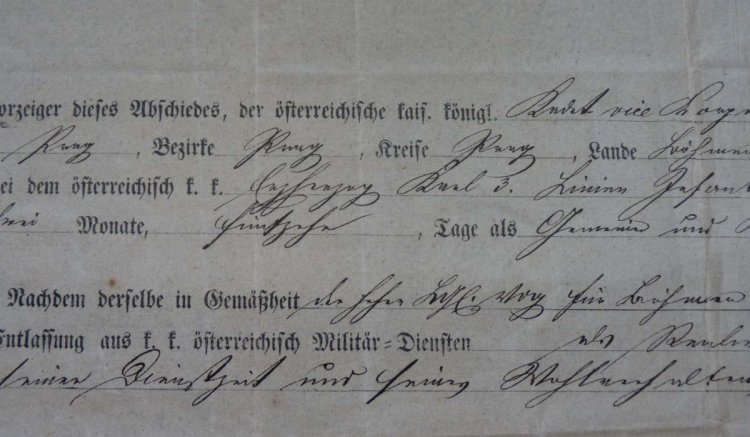 orzeiger dieses Abschiedes, der österreichische kais. königl. Kadet vice Korp
Prag, Bezirke Prag, Kreise Prag, Lande Böhmen
ei dem österreichisch k. k. Erzherzog Karl 3. Linien Infant
Monate, fünfzehn, Tage als Gemeiner und
Nachdem derselbe in Gemäßheit der hohen für Böhmen
Entlassung aus k. k. österreichisch Militär-Diensten als
seiner Dienstzeit und seines Wohlverhalten